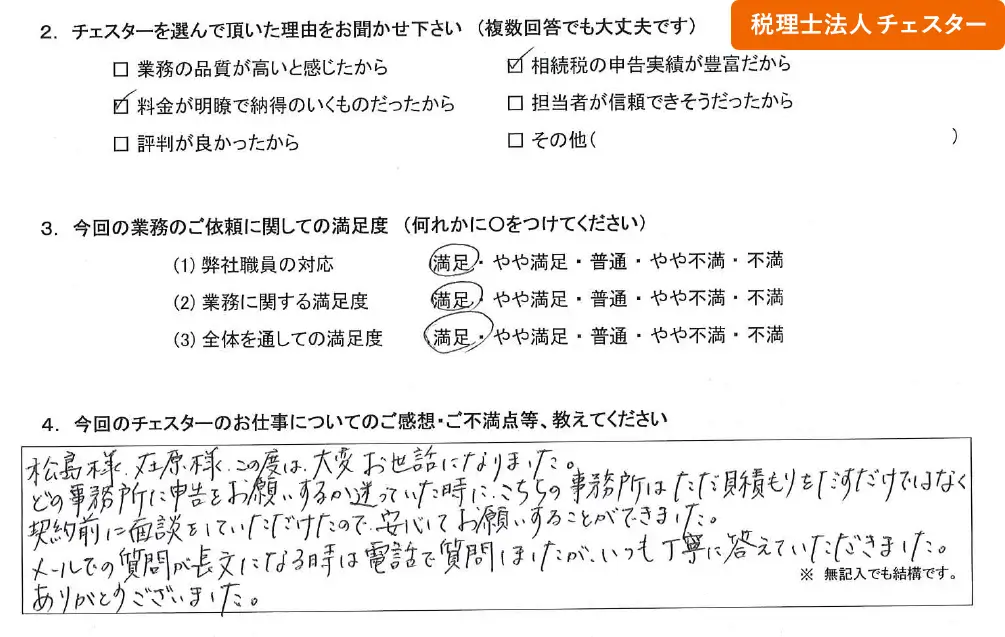 税理士法人 チェスター
2. チェスターを選んで頂いた理由をお聞かせ下さい (複数回答でも大丈夫です)
□ 業務の品質が高いと感じたから ☑ 相続税の申告実績が豊富だから
☑ 料金が明瞭で納得のいくものだったから □ 担当者が信頼できそうだったから
□ 評判が良かったから □ その他( )
3. 今回の業務のご依頼に関しての満足度 (何れかに○をつけてください)
(1) 弊社職員の対応 満足・やや満足・普通・やや不満・不満
(2) 業務に関する満足度 満足・やや満足・普通・やや不満・不満
(3) 全体を通しての満足度 満足・やや満足・普通・やや不満・不満
4. 今回のチェスターのお仕事についてのご感想・ご不満点等、教えてください
松島様、在原様、この度は、大変お世話になりました。
どの事務所に申告をお願いするか迷っていた時に、こちらの事務所はただ見積もりをだすだけではなく
契約前に面談をしていただけたので、安心してお願いすることができました。
メールでの質問が長文になる時は電話で質問しましたが、いつも丁寧に答えていただきました。
※ 無記入でも結構です。
ありがとうございました。